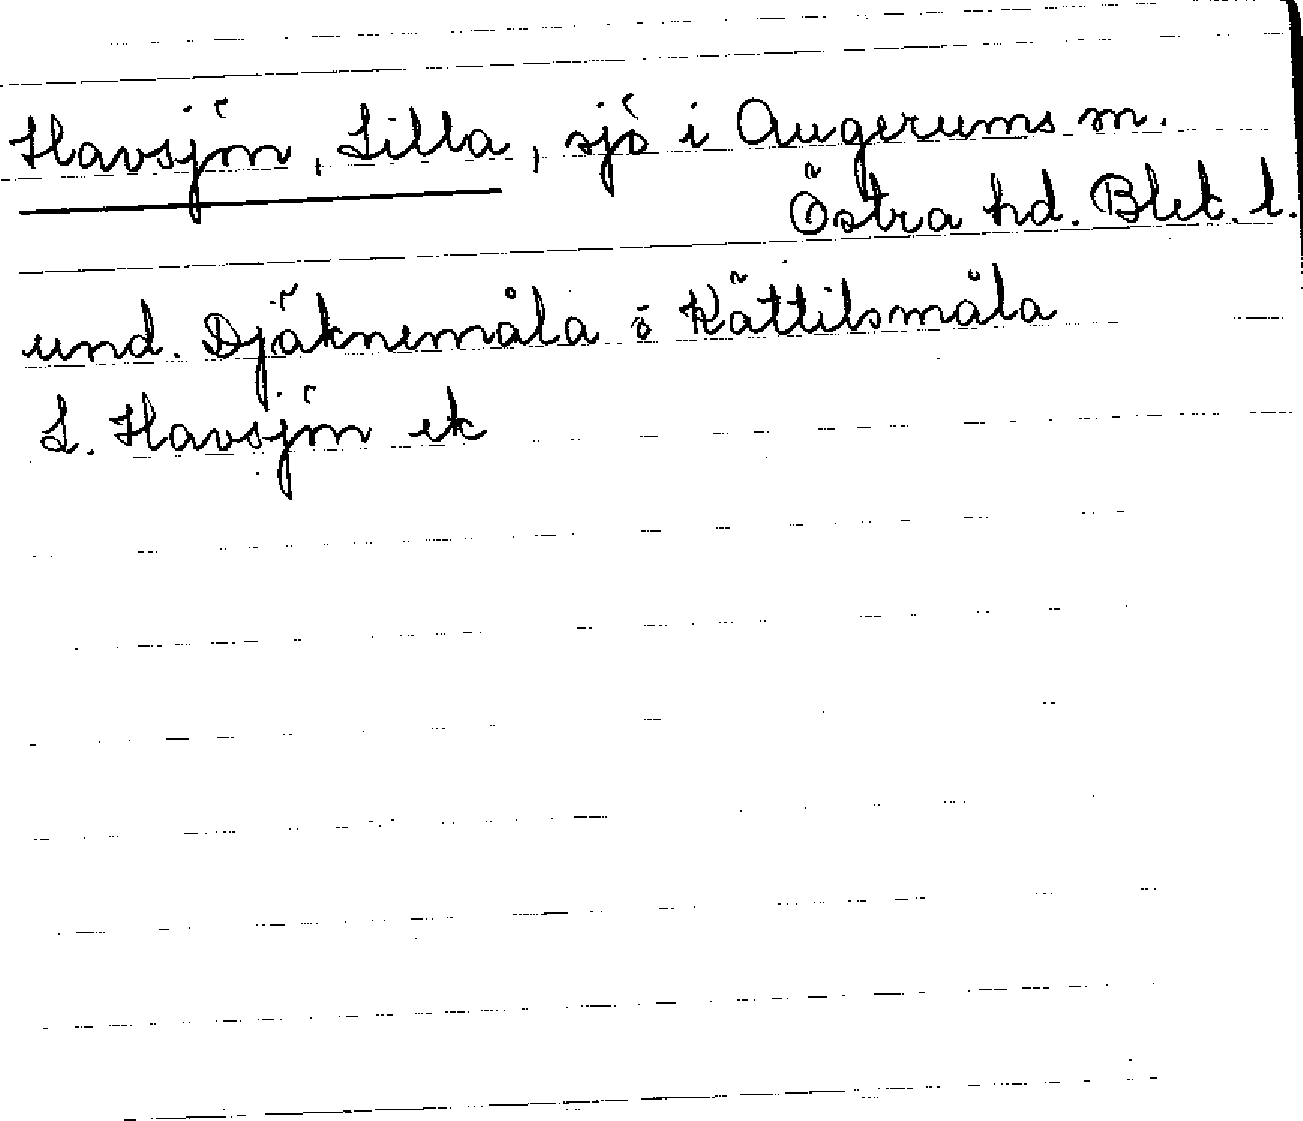 Havsjön, Lilla, sjö i Augerums sn.
Östra hd. Blek. l.
und. Djäknemåla o Kättilsmåla
L. Havsjön ek